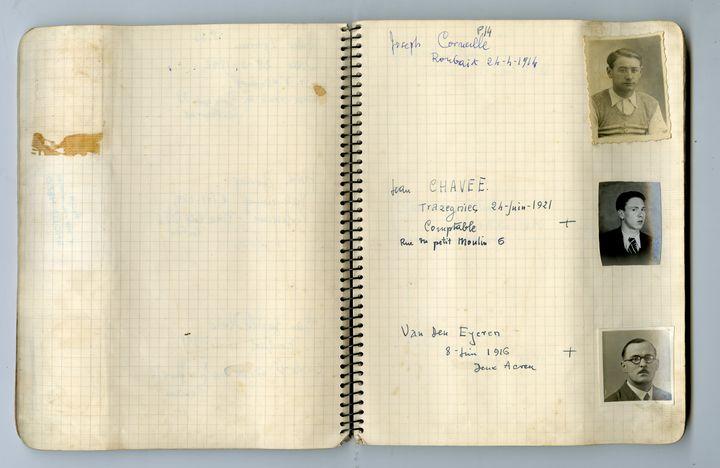 P/4
Joseph Corneille
Roubaix 24-4-1914
Jean CHAVEE.
Trazegnies 24-Juin-1921
Comptable
+
Rue du petit Moulin 6
Van den Eycken
8-Juin 1916
+
Deux Acren